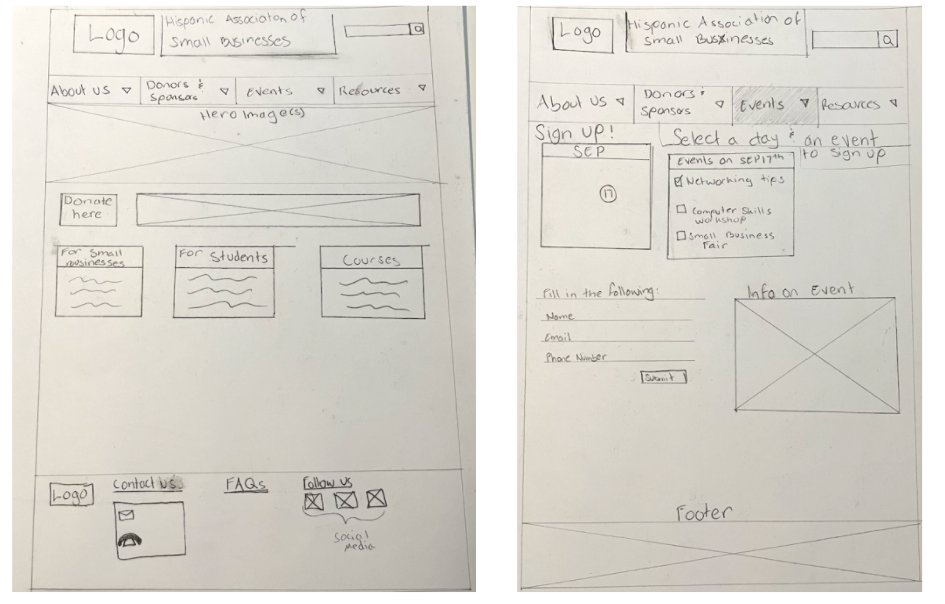 Logo
Hispanic Associaton of
Small Businesses
About US
Donors &
Sponsors
Events
Resources
Hero Image(s)
Donate
here
For Small
Businesses
For Students
Courses
Logo
Contact Us
FAQs
Follow Us
Social
Media
Logo
Hispanic Association of
Small Businesses
About US
Donors &
Sponsors
Events
Resources
Sign UP!
Select a day & an event
to sign up
SEP
17
Events on SEP 17th
Networking tips
Computer Skills
Workshop
Small Business
Fair
Fill in the following:
Name
Email
Phone Number
Submit
Info on Event
Footer